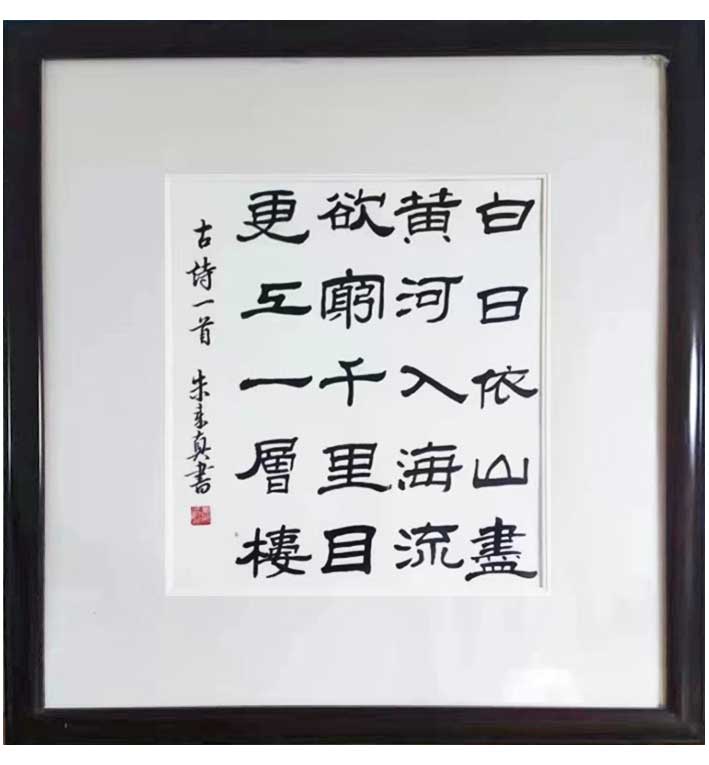 白日依山盡
黄河入海流
欲窮千里目
更上一層樓
古詩一首 朱來真書